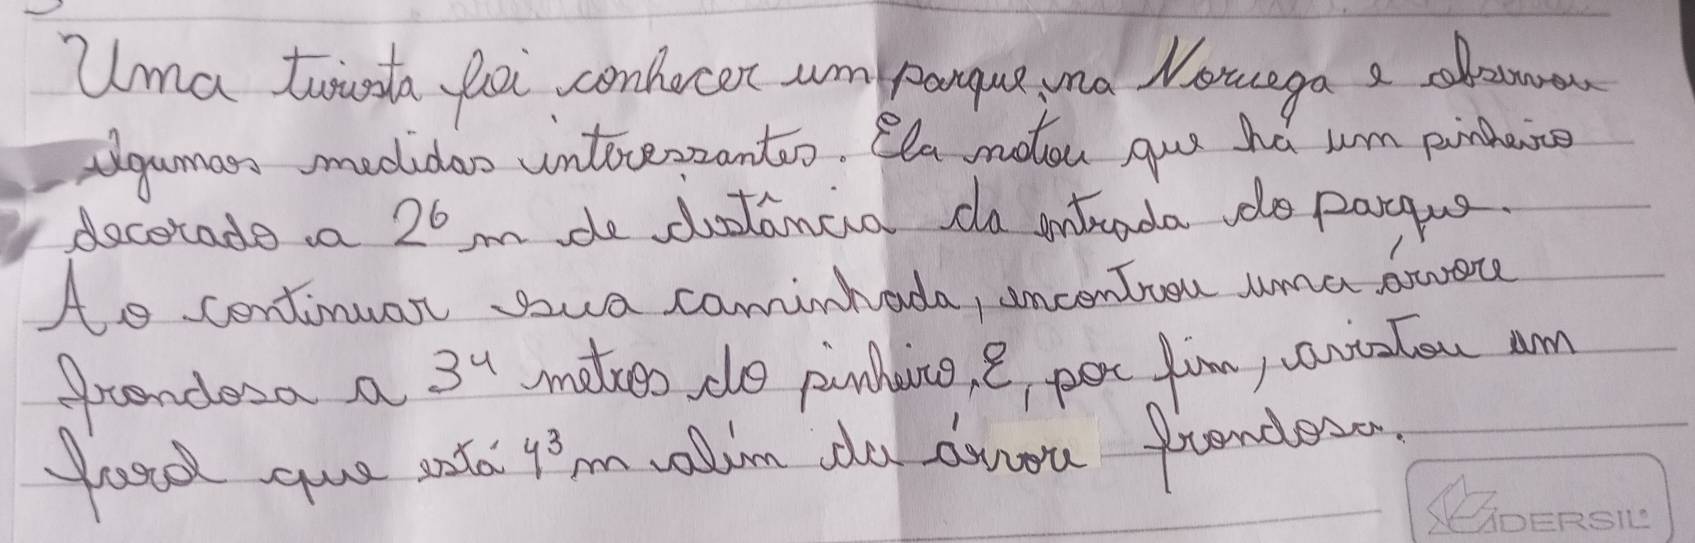 Uma turista foi conhecer um parque na Noruega e observou
algumas medidas interessantes. Ela notou que há um pinheiro
decorado a 2⁶ m de distância da entrada do parque.
Ao continuar sua caminhada, encontrou uma árvore
frondosa a 3⁴ metros do pinheiro. E, por fim, avistou um
farol que está 4³ m além da árvore frondosa.
DERSIL